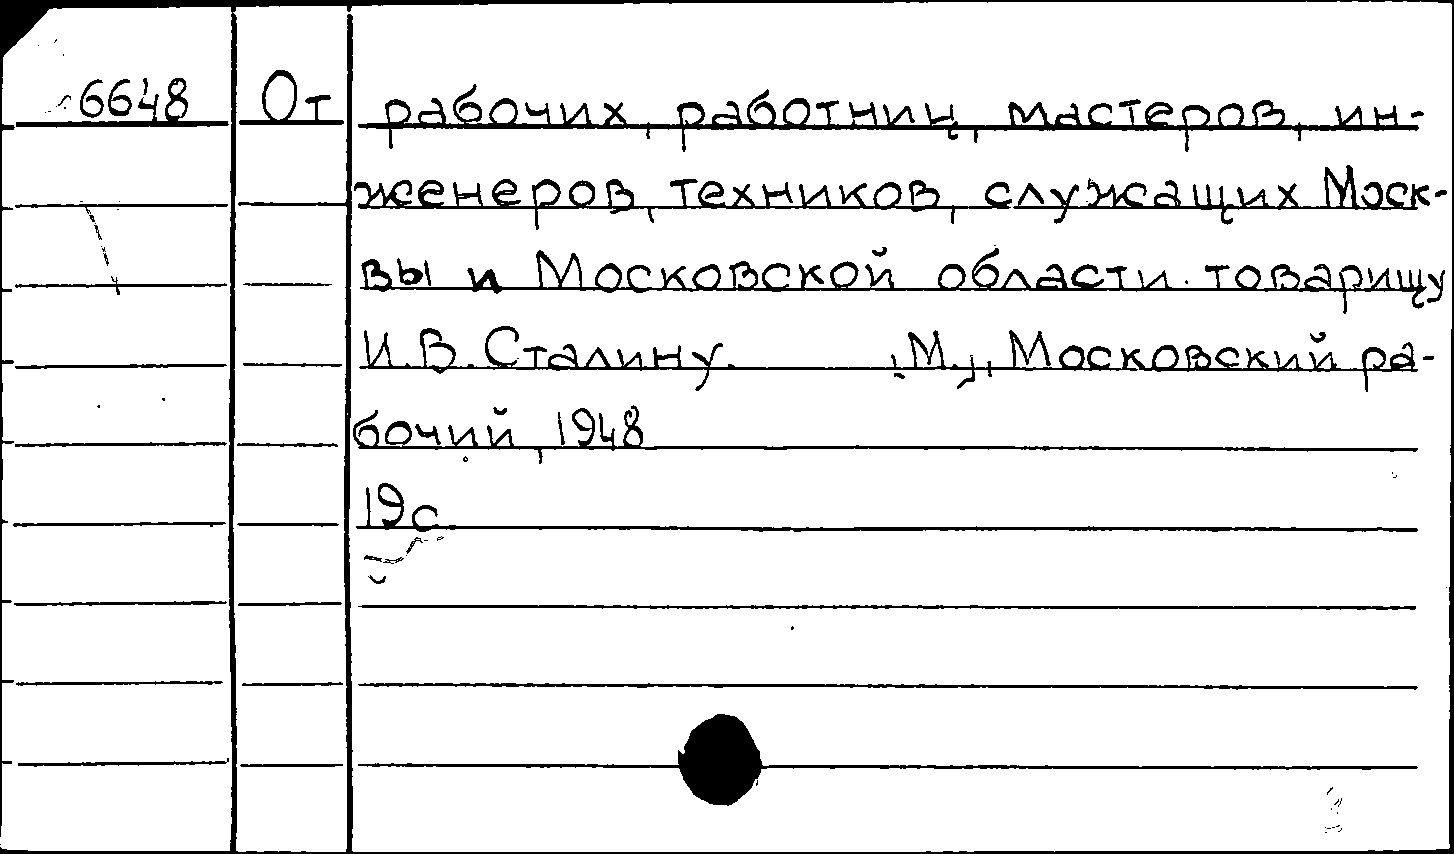 6648 От рабочих, работниц, мастеров, ин-
женеров, техников, служащих Моск-
вы и Московской области товарищу
И.В. Сталину. М., Московский ра-
бочий, 1948
19с